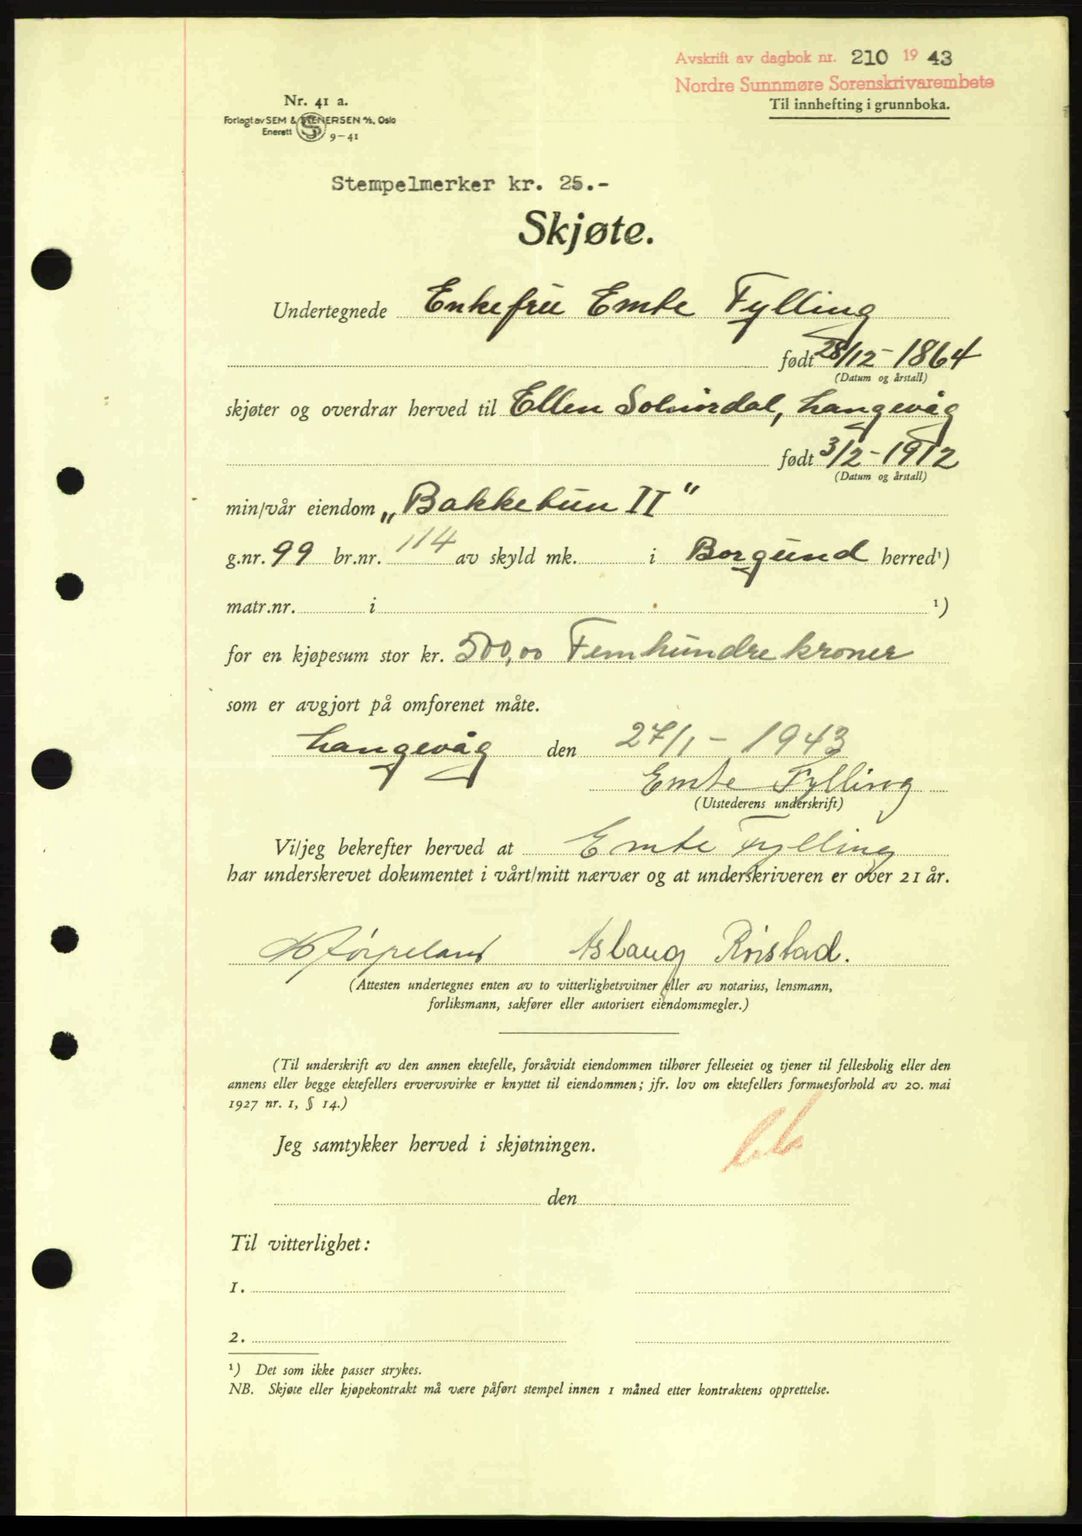 Avskrift av dagbok nr. 210 1943
Nordre Sunnmøre Sorenskrivarembete
Til innhefting i grunnboka.
Nr. 41 a.
Forlagt av SEM & STENERSEN A/S, Oslo
Enerett 9-41
Stempelmerker kr. 25.-
Skjøte.
Undertegnede Enkefru Emte Fylling
født 28/12-1864
(Datum og årstall)
skjøter og overdrar herved til Ellen Solnørdal, Langevåg
født 3/2-1912
(Datum og årstall)
min/vår eiendom „Bakketun II"
g.nr. 99 br.nr. 114 av skyld mk. i Borgund herred¹)
matr.nr. i ¹)
for en kjøpesum stor kr. 500,00 Femhundre kroner
som er avgjort på omforenet måte.
Langevåg den 27/1-1943
Emte Fylling
(Utstederens underskrift)
Vi/jeg bekrefter herved at Emte Fylling
har underskrevet dokumentet i vårt/mitt nærvær og at underskriveren er over 21 år.
Aslaug Röistad.
(Attesten undertegnes enten av to vitterlighetsvitner eller av notarius, lensmann,
forliksmann, sakfører eller autorisert eiendomsmegler.)
(Til underskrift av den annen ektefelle, forsåvidt eiendommen tilhører felleseiet og tjener til fellesbolig eller den
annens eller begge ektefellers ervervsvirke er knyttet til eiendommen; jfr. lov om ektefellers formuesforhold av 20. mai
1927 nr. 1, § 14.)
Jeg samtykker herved i skjøtningen.
den
Til vitterlighet:
1.
2.
¹) Det som ikke passer strykes.
NB. Skjøte eller kjøpekontrakt må være påført stempel innen 1 måned etter kontraktens opprettelse.